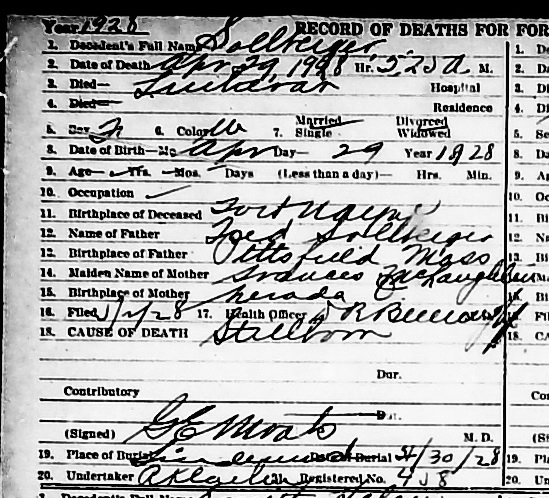 Year 1928 RECORD OF DEATHS FOR FOR
1. Decedent's Full Name Sollberger
2. Date of Death Apr 29 1928 Hr. 525 A M.
3. Died— Lutheran Hospital
4. Died— Residence
5. Sex F 6. Color W 7. Married Single Divorced Widowed
8. Date of Birth—Mo Apr Day— 29 Year 1928
9. Age— Yrs. —Mos. Days (Less than a day)— Hrs. Min.
10. Occupation
11. Birthplace of Deceased Fort Wayne
12. Name of Father Fred Sollberger
12. Birthplace of Father Pittsfield Mass
14. Maiden Name of Mother Frances McLaughlin
15. Birthplace of Mother Nevada
16. Filed 28 17. Health Officer
18. CAUSE OF DEATH Stillborn
Dur.
Contributory
Dur.
(Signed) G E Moats M. D.
19. Place of Burial Lindenwood Date of Burial 4/30/28
20. Undertaker 21. Registered No. 458
1. Decedent's Full Name